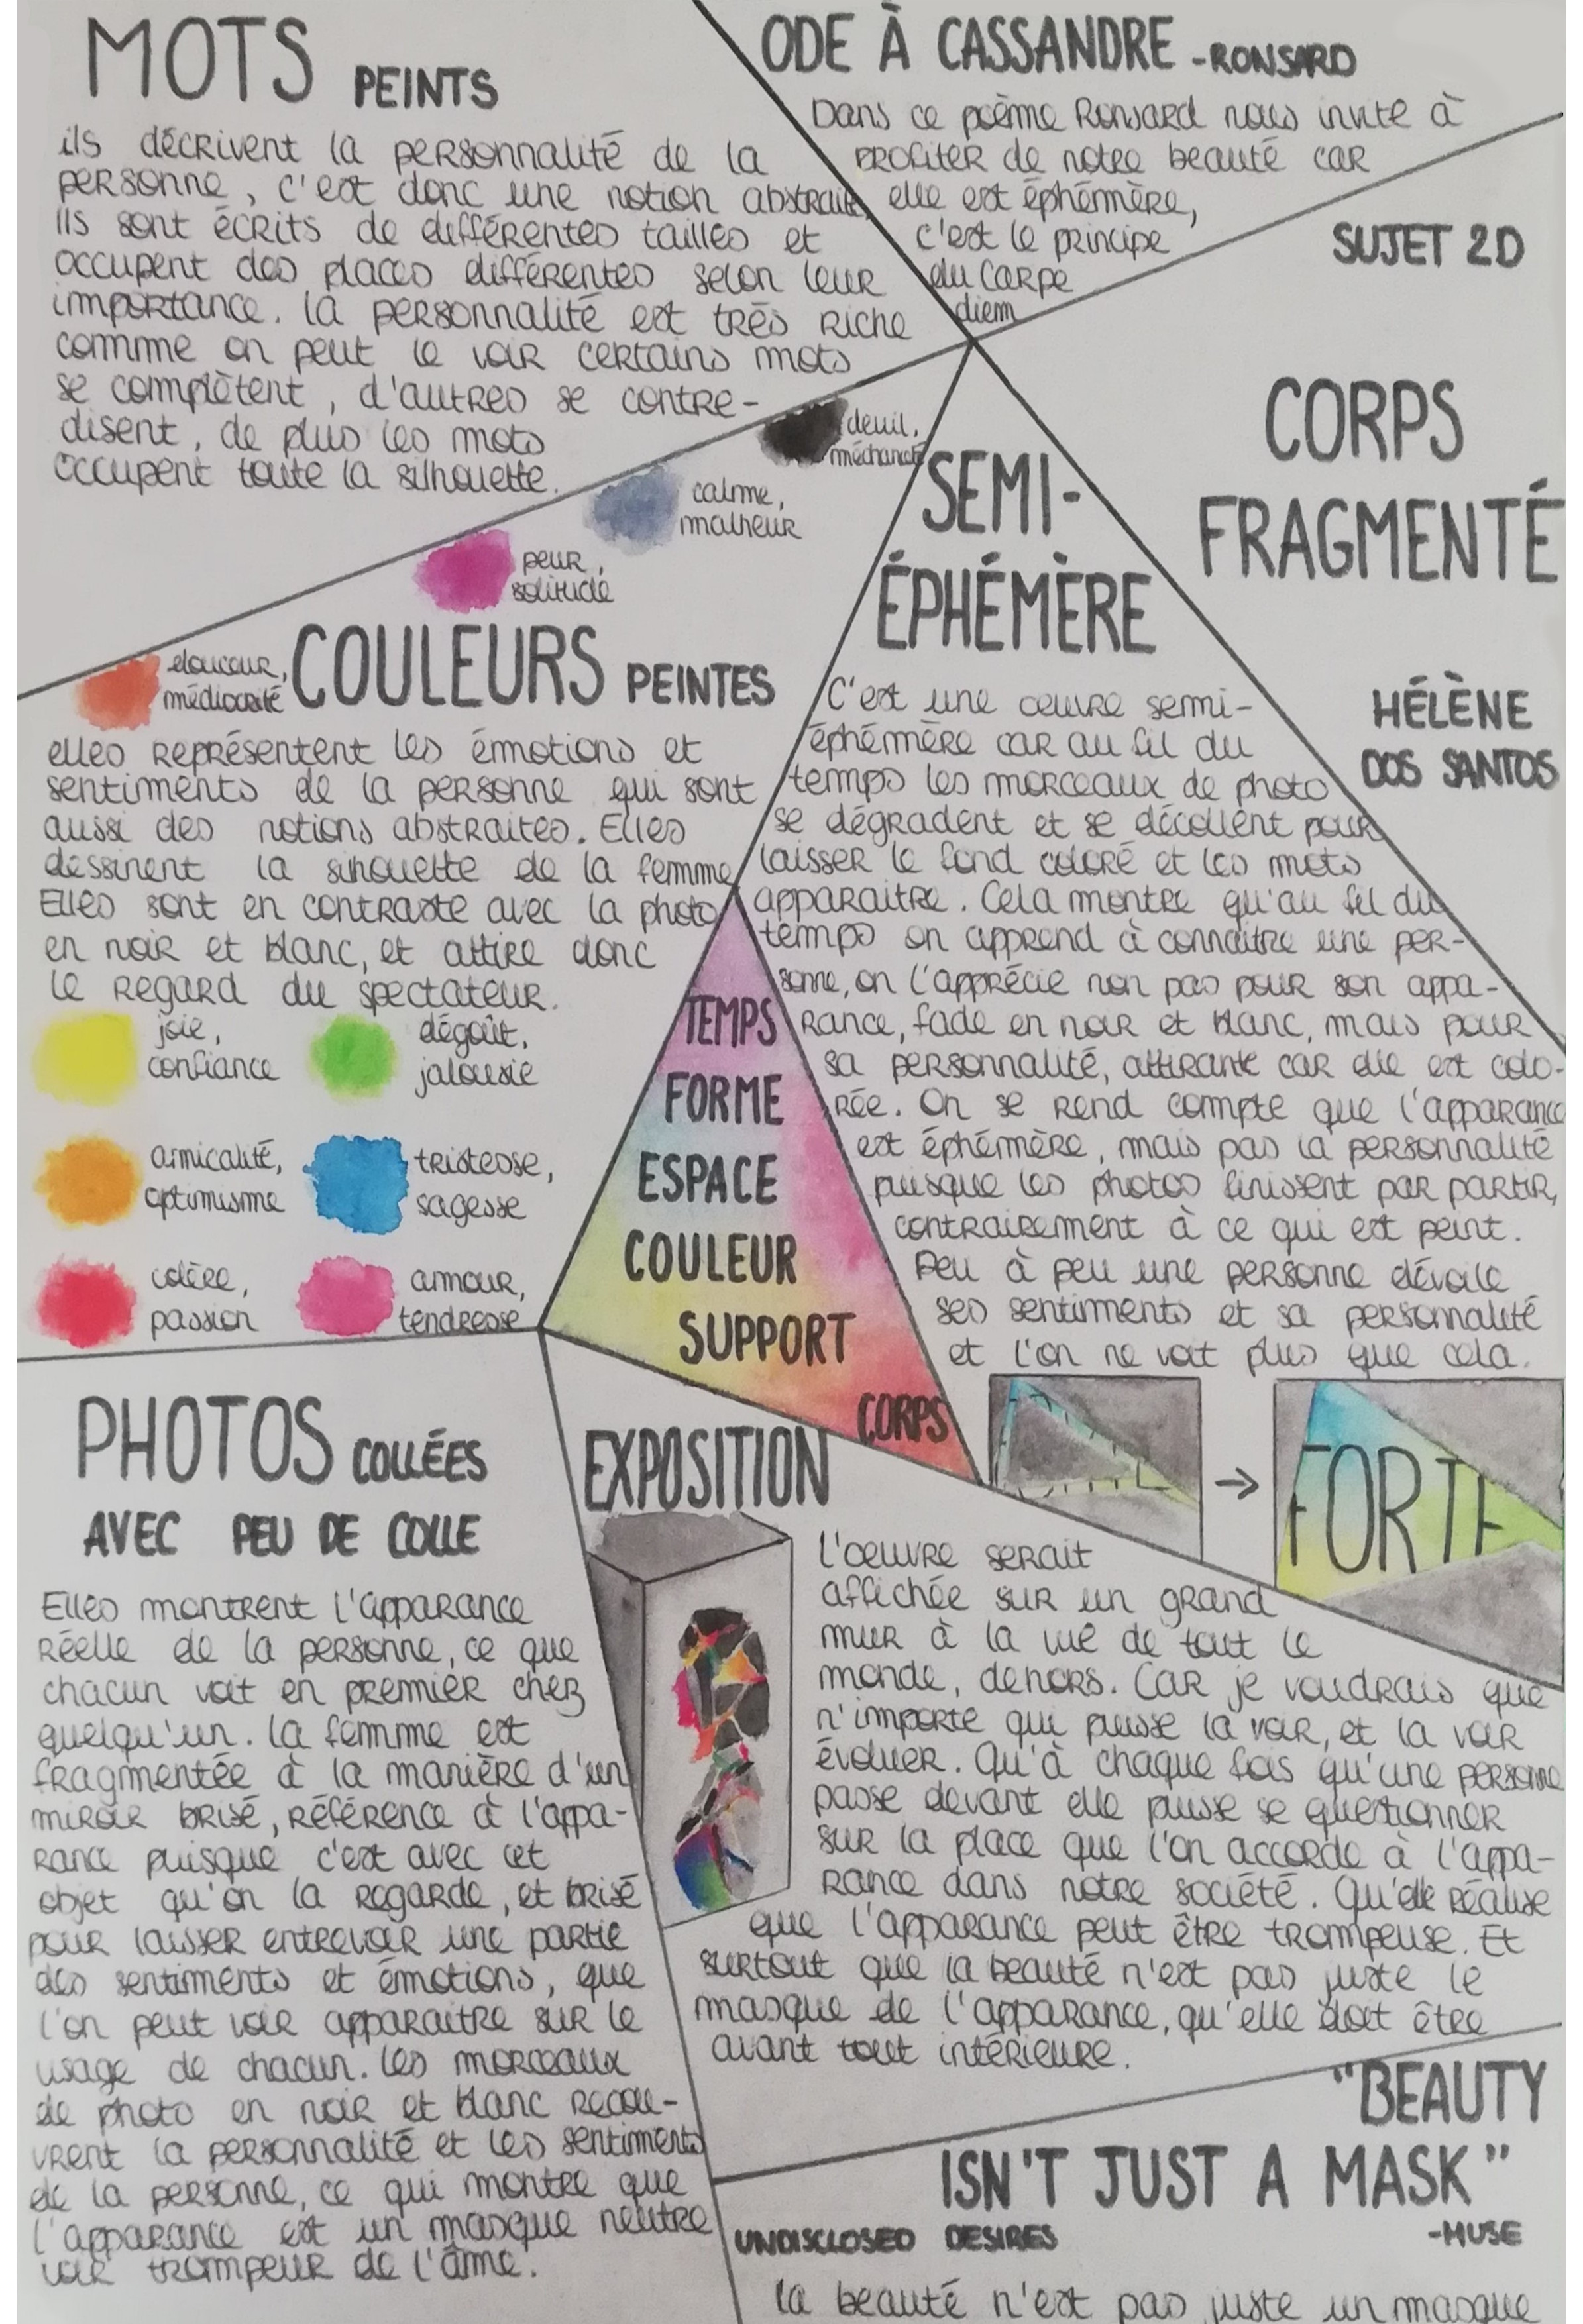 MOTS PEINTS
ils décrivent la personnalité de la
personne, c'est donc une notion abstraite,
ils sont écrits de différentes tailles et
occupent des places différentes selon leur
importance. la personnalité est très riche
comme on peut le voir certains mots
se complètent, d'autres se contre-
disent, de plus les mots
occupent toute la silhouette.
ODE À CASSANDRE -RONSARD
Dans ce poème Ronsard nous invite à
profiter de notre beauté car
elle est éphémère,
c'est le principe
du Carpe
diem
SUJET 2D
CORPS
FRAGMENTÉ
HÉLÈNE
DOS SANTOS
deuil,
méchanceté
calme,
malheur
peur,
solitude
douceur,
médiocrité
COULEURS PEINTES
elles représentent les émotions et
sentiments de la personne qui sont
aussi des notions abstraites. Elles
dessinent la silhouette de la femme
Elles sont en contraste avec la photo
en noir et blanc, et attire donc
le regard du spectateur.
joie,
confiance
dégoût,
jalousie
amicalité,
optimisme
tristesse,
sagesse
colère,
passion
amour,
tendresse
SEMI-
ÉPHÉMÈRE
C'est une œuvre semi-
éphémère car au fil du
temps les morceaux de photo
se dégradent et se décollent pour
laisser le fond coloré et les mots
apparaitre. Cela montre qu'au fil du
temps on apprend à connaitre une per-
sonne, on l'apprécie non pas pour son appa-
rance, fade en noir et blanc, mais pour
sa personnalité, attirante car elle est colo-
rée. On se rend compte que l'apparance
est éphémère, mais pas la personnalité
puisque les photos finissent par partir,
contrairement à ce qui est peint.
Peu à peu une personne dévoile
ses sentiments et sa personnalité
et l'on ne voit plus que cela.
→
FORTE
TEMPS
FORME
ESPACE
COULEUR
SUPPORT
CORPS
PHOTOS COLLÉES
AVEC PEU DE COLLE
Elles montrent l'apparance
réelle de la personne, ce que
chacun voit en premier chez
quelqu'un. la femme est
fragmentée à la manière d'un
miroir brisé, référence à l'appa-
rance puisque c'est avec cet
objet qu'on la regarde, et brisé
pour laisser entrevoir une partie
des sentiments et émotions, que
l'on peut voir apparaitre sur le
visage de chacun. les morceaux
de photo en noir et blanc recou-
vrent la personnalité et les sentiments
de la personne, ce qui montre que
l'apparance est un masque neutre
voir trompeur de l'âme.
EXPOSITION
L'œuvre serait
affichée sur un grand
mur à la vue de tout le
monde, dehors. Car je voudrais que
n'importe qui puisse la voir, et la voir
évoluer. Qu'à chaque fois qu'une personne
passe devant elle puisse se questionner
sur la place que l'on accorde à l'appa-
rance dans notre société. Qu'elle réalise
que l'apparance peut être trompeuse. Et
surtout que la beauté n'est pas juste le
masque de l'apparance, qu'elle doit être
avant tout intérieure.
"BEAUTY
ISN'T JUST A MASK"
UNDISCLOSED DESIRES -MUSE
la beauté n'est pas juste un masque